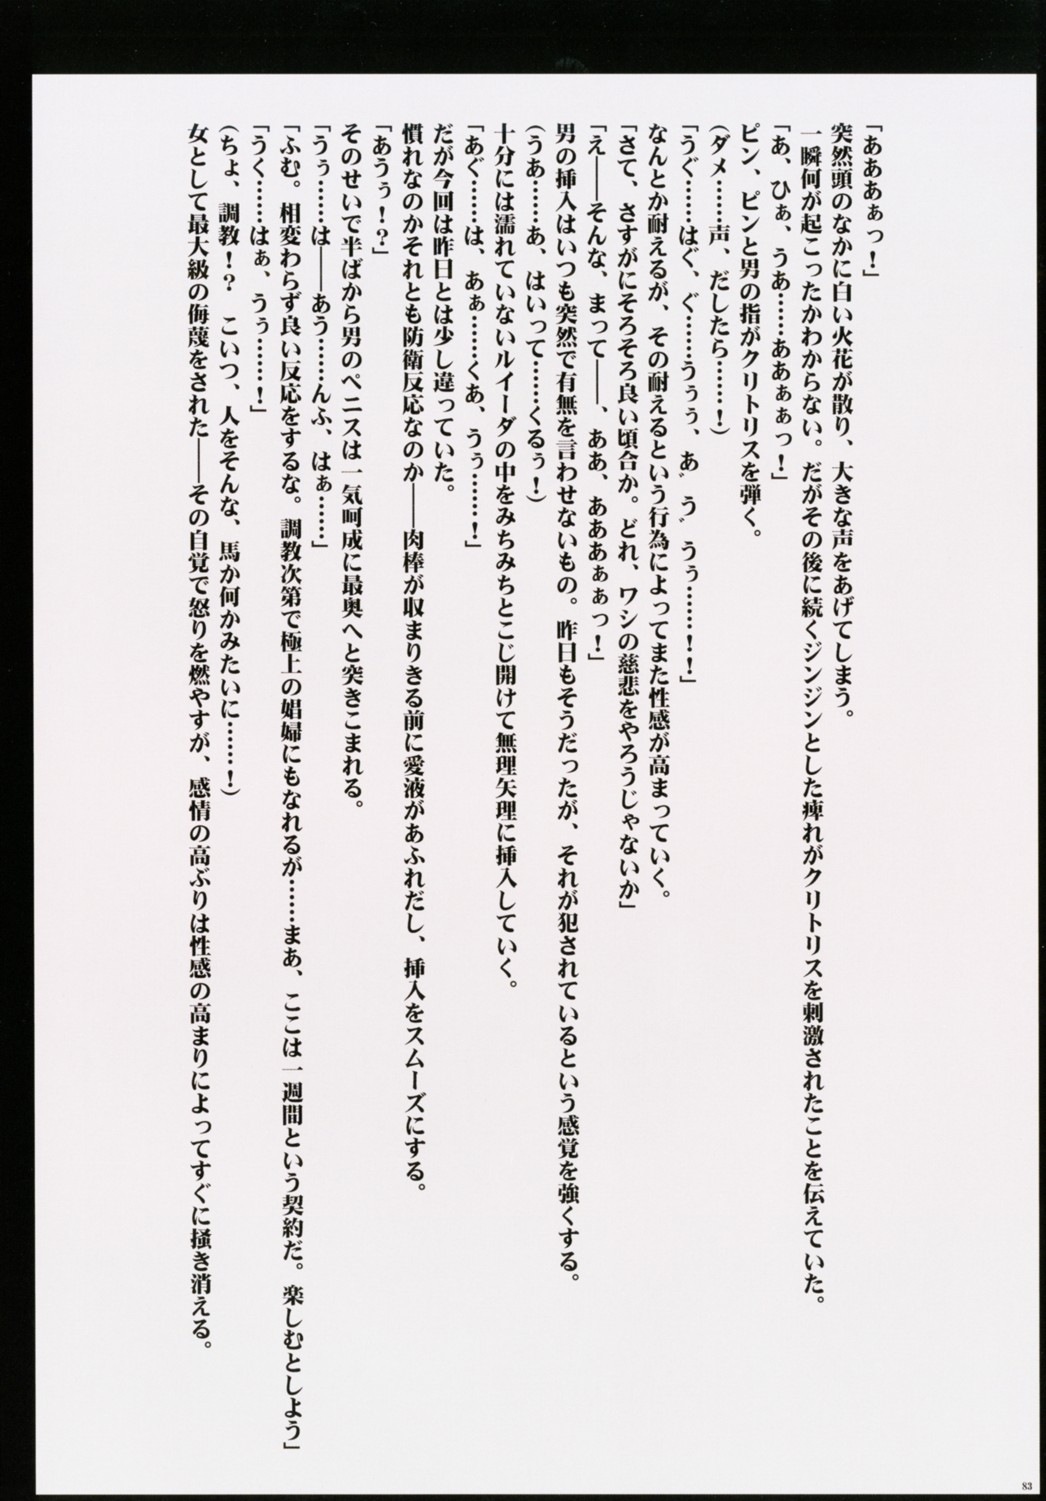 「あああぁっ！」
突然頭のなかに白い火花が散り、大きな声をあげてしまう。
一瞬何が起こったかわからない。だがその後に続くジンジンとした痺れがクリトリスを刺激されたことを伝えていた。
「あ、ひぁ、うあ……ああぁぁっ！」
ピン、ピンと男の指がクリトリスを弾く。
（ダメ……声、だしたら……！）
「うぐ……はぐ、ぐ……うぅぅ、あ゛う゛うぅ……！！」
なんとか耐えるが、その耐えるという行為によってまた性感が高まっていく。
「さて、さすがにそろそろ良い頃合か。どれ、ワシの慈悲をやろうじゃないか」
「え――そんな、まって――、ああ、あああぁぁっ！」
男の挿入はいつも突然で有無を言わせないもの。昨日もそうだったが、それが犯されているという感覚を強くする。
（うあ……あ、はいって……くるぅ！）
十分には濡れていないルイーダの中をみちみちとこじ開けて無理矢理に挿入していく。
「あぐ……は、あぁ……くあ、うぅ……！」
だが今回は昨日とは少し違っていた。
慣れなのかそれとも防衛反応なのか――肉棒が収まりきる前に愛液があふれだし、挿入をスムーズにする。
「あうぅ！？」
そのせいで半ばから男のペニスは一気呵成に最奥へと突きこまれる。
「うぅ……は――あう……んふ、はぁ……」
「ふむ。相変わらず良い反応をするな。調教次第で極上の娼婦にもなれるが……まあ、ここは一週間という契約だ。楽しむとしよう」
「うく……はぁ、うぅ……！」
（ちょ、調教！？　こいつ、人をそんな、馬か何かみたいに……！）
女として最大級の侮蔑をされた――その自覚で怒りを燃やすが、感情の高ぶりは性感の高まりによってすぐに掻き消える。
83